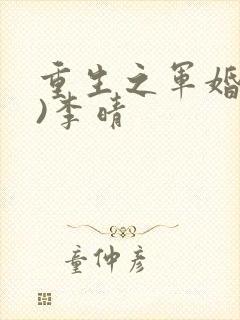 重生之军婚
)李晴
童仲彦